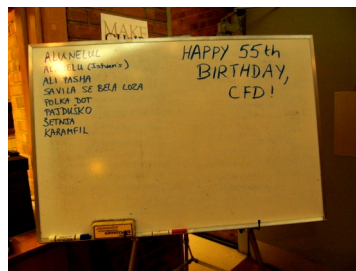 MAKE
ALUNELUL
ALI PASHA
SAVILA SE BELA LOZA
POLKA DOT
PAJDUŠKO
ŠETNJA
KARAMFIL
HAPPY 55th
BIRTHDAY,
CFD!